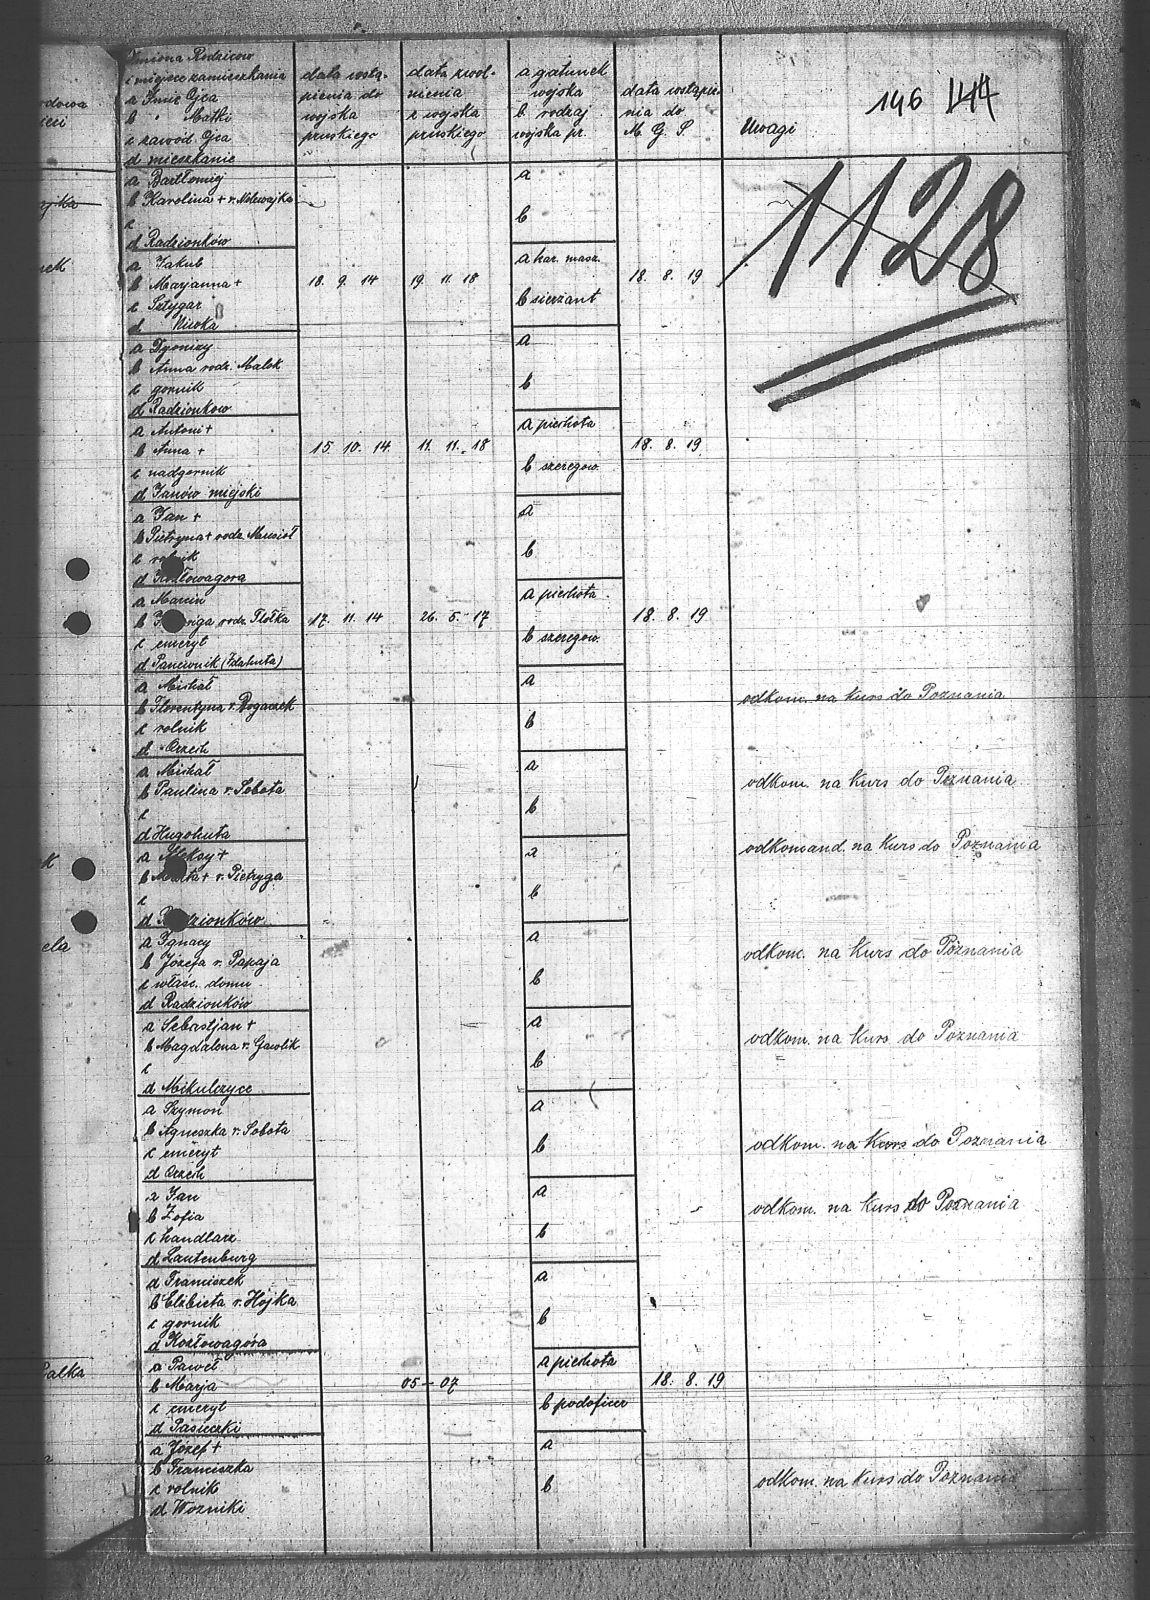 Imiona Rodziców
i miejsce zamieszkania
a Imię Ojca
b " Matki
c zawód Ojca
d mieszkanie
data wstą-
pienia do
wojska
pruskiego
data zwol-
nienia
z wojska
pruskiego
a gatunek
wojska
b rodzaj
wojska pr.
data wstąpie-
nia do
M. G. S.
Uwagi
146 144
1128
a Bartłomiej
b Karolina + r.
c
d Radzionków
a
b
a Jakub
b Maryanna +
c Sztygar
d Niwka
18. 9. 14
19. 11. 18
a kar. masz.
b sierżant
18. 8. 19
a Dyonizy
b Anna rodz. Malok
c gornik
d Radzionkow
a
b
a Antoni +
b Anna +
c nadgornik
d Janów miejski
15. 10. 14
11. 11. 18
a piechota
b szeregow.
18. 8. 19
a Jan +
b Pietryna + rodz. Musioł
c rolnik
d Kozłowagora
a
b
a Marcin
b rodz. Flotka
c emeryt
d Panewnik (Idahuta)
17. 11. 14
26. 5. 17
a piechota
b szeregow.
18. 8. 19
a Michał
b Florentyna r. Rogaczek
c rolnik
d Orzech
a
b
odkom. na kurs do Poznania
a Michał
b Paulina r. Sobota
c
d Hugohuta
a
b
odkom. na kurs do Poznania
a Aleksy +
b Marta + r. Pietryga
c
d Radzionków
a
b
odkomand. na kurs do Poznania
a Ignacy
b Józefa r. Papaja
c właśc. domu
d Radzionków
a
b
odkom. na kurs do Poznania
a Sebastjan +
b Magdalena r. Gawlik
c
d Mikulczyce
a
b
odkom. na kurs do Poznania
a Szymon
b Agnieszka r. Sobota
c emeryt
d Orzech
a
b
odkom. na kurs do Poznania
a Jan
b Zofia
c handlarz
d Lautenburg
a
b
odkom. na kurs do Poznania
d Franciszek
b Elżbieta r. Hojka
c gornik
d Kozłowagóra
a
b
a Paweł
b Marja
c emeryt
d Pasieczki
05 – 07
a piechota
b podoficer
18. 8. 19
a Józef +
b Franciszka
c rolnik
d Wozniki
a
b
odkom. na kurs do Poznania